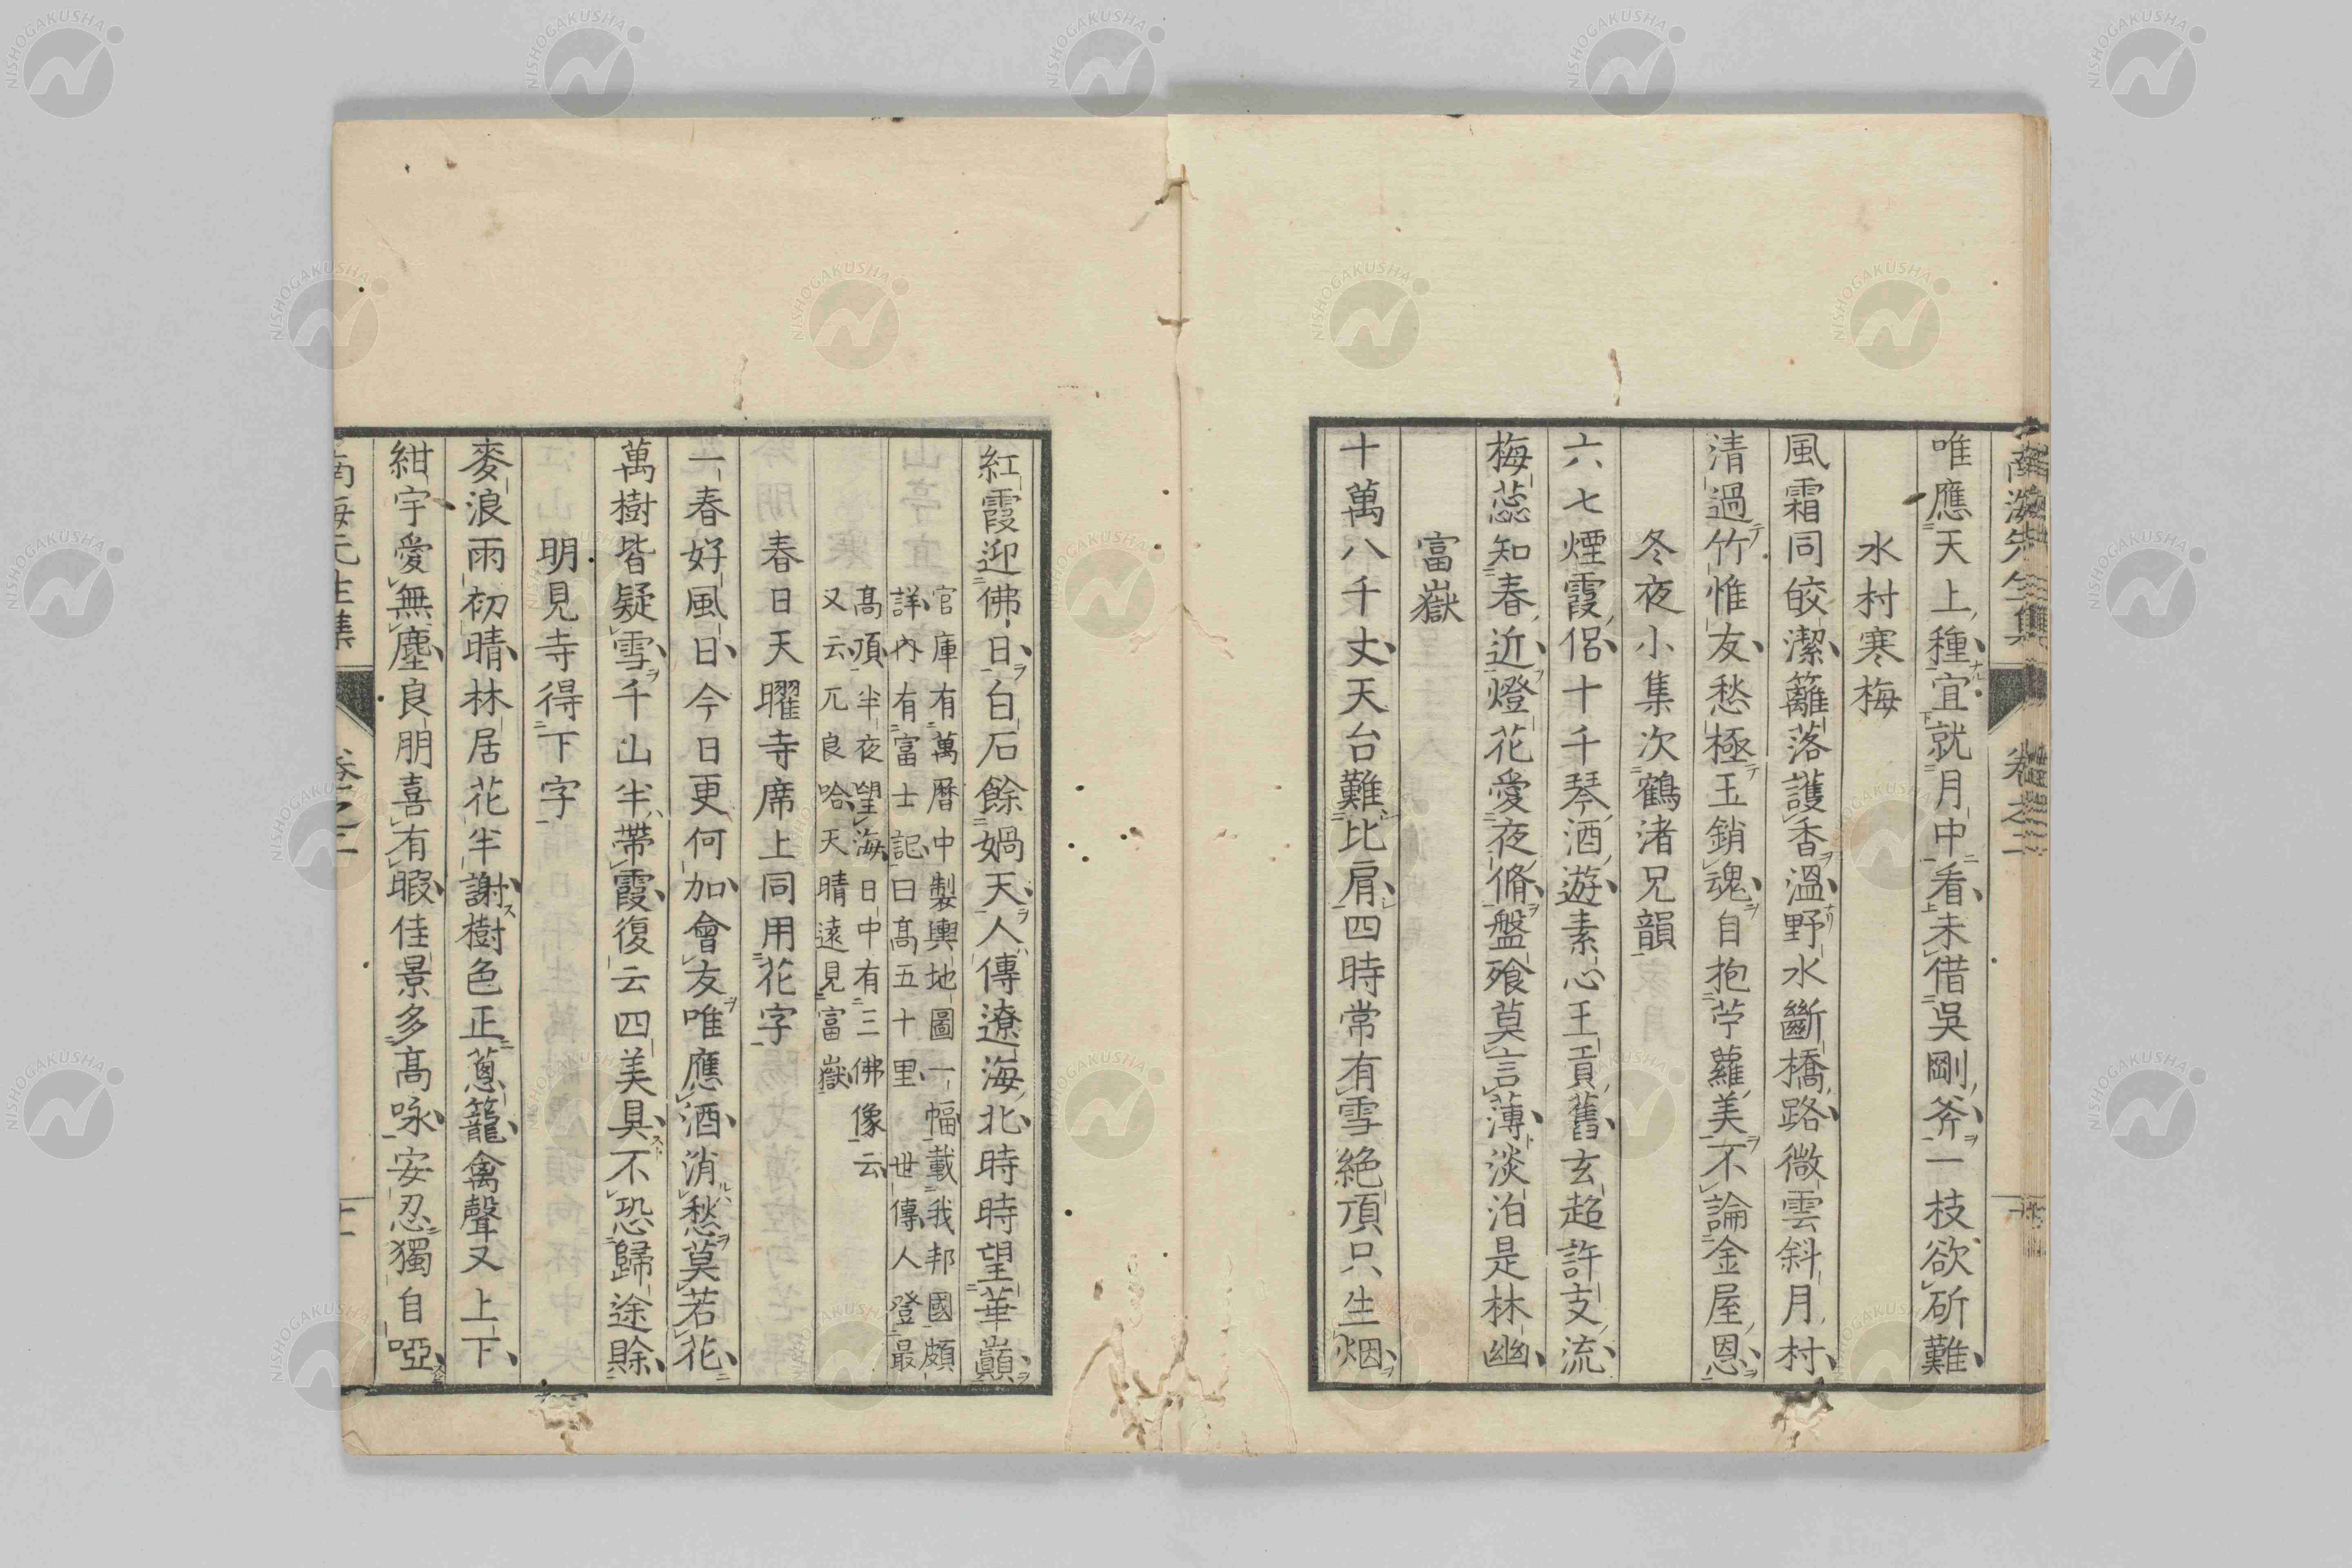 南海先生集 卷之二
唯應天上種宜就月中看未借吳剛斧一枝欲斫難
水村寒梅
風霜同皎潔籬落護香溫野水斷橋路微雲斜月村
清過竹惟友愁極玉銷魂自抱苧蘿美不論金屋恩
冬夜小集次鶴渚兄韻
六七煙霞侶十千琴酒遊素心王貢舊玄超許支流
梅蕊知春近燈花愛夜脩盤飱莫言薄淡泊是林幽
富嶽
十萬八千丈天台難比肩四時常有雪絕頂只生烟
紅霞迎佛日白石餘媧天人傳遼海北時時望華巔
官庫有萬曆中製輿地圖一幅載我邦國頗
詳內有富士記曰高五十里世傳人登最
高頂半夜望海日中有三佛像云
又云兀良哈天晴遠見富嶽
春日天曜寺席上同用花字
一春好風日今日更何加會友唯應酒消愁莫若花
萬樹皆疑雪千山半帶霞復云四美具不恐歸途賖
明見寺得下字
麥浪雨初晴林居花半謝樹色正蔥籠禽聲又上下
紺宇愛無塵良朋喜有暇佳景多高咏安忍獨自啞
南海先生集 卷之二
NISHOGAKUSHA